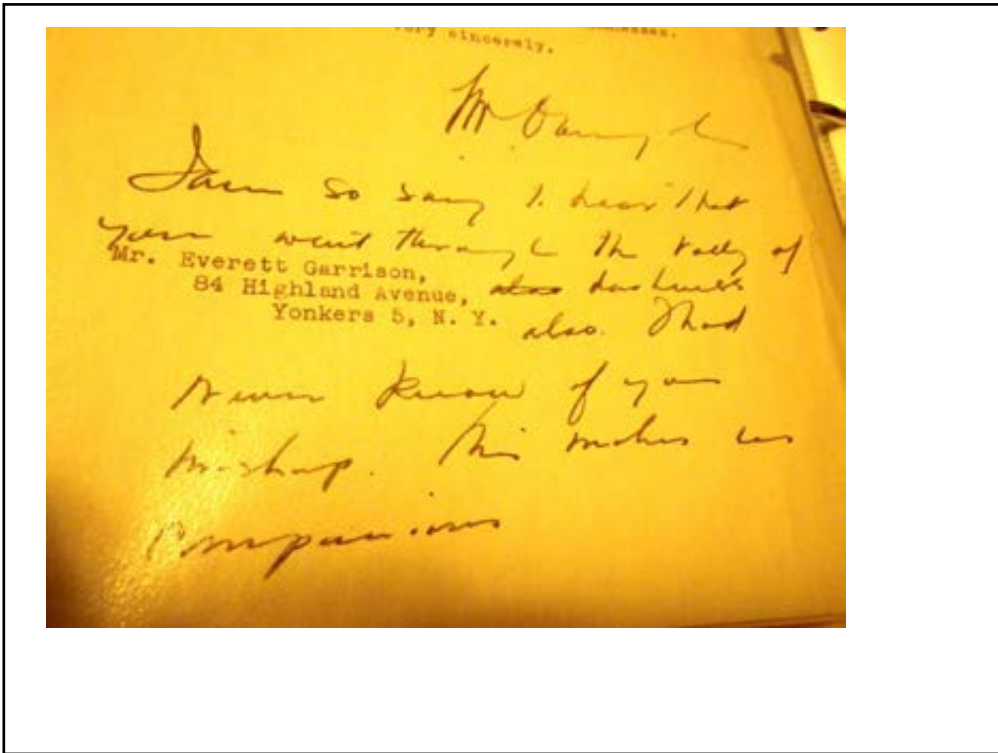 very sincerely.
I am so sorry to hear that
you went through the vally of
Mr. Everett Garrison,
84 Highland Avenue, also darkness
Yonkers 5, N. Y. also. I had
never know of your
mishap. This makes us
companions